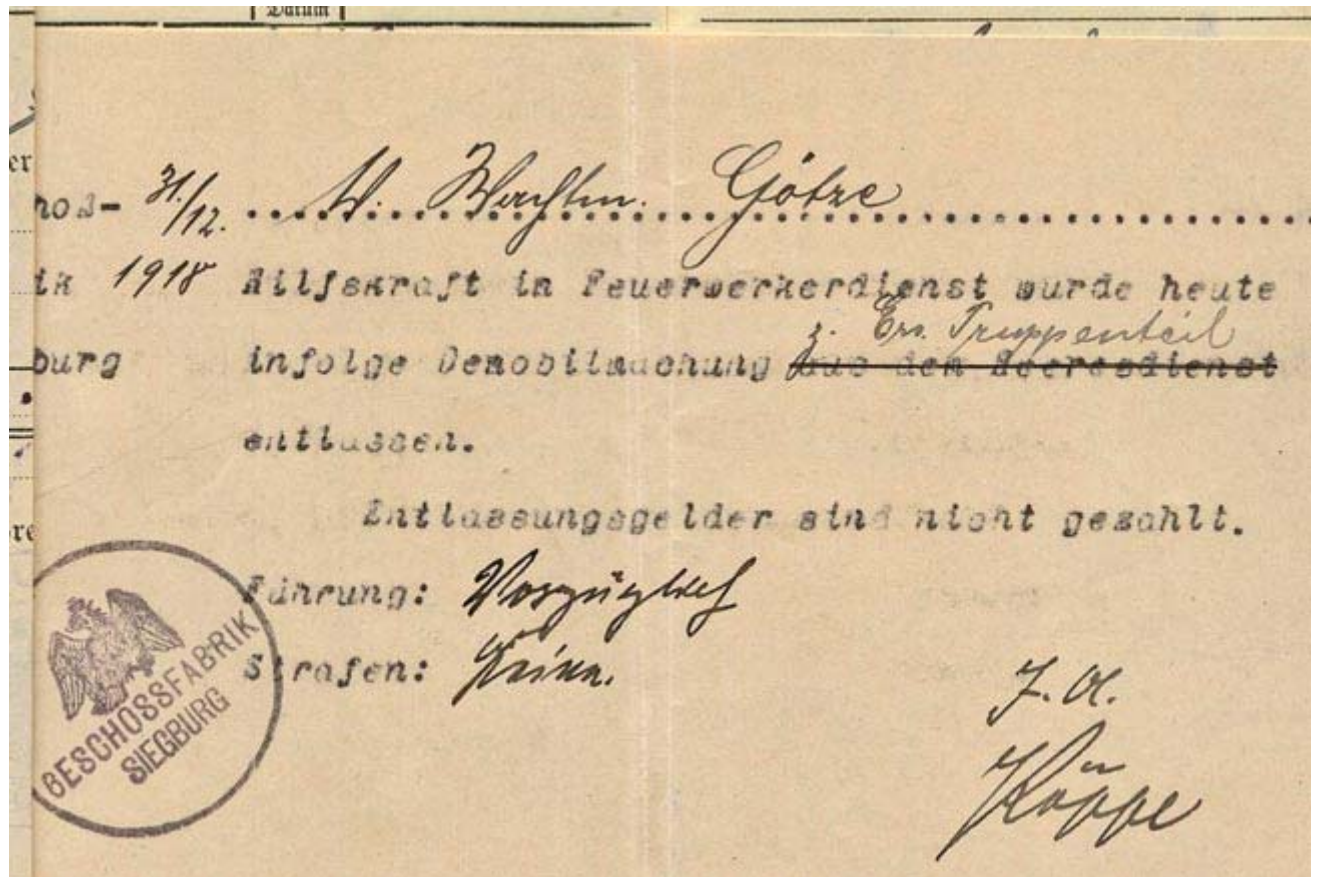 Datum
hoß- 31/12. W. Wachtm. Götze
ik 1918 Hilfskraft im Feuerwerkerdienst wurde heute
z. Ers. Truppenteil
burg infolge Demobilmachung aus dem Heeresdienst
entlassen.
Entlassungsgelder sind nicht gezahlt.
Führung: Vorzüglich
Strafen: Keine.
GESCHOSSFABRIK
SIEGBURG
I. A.